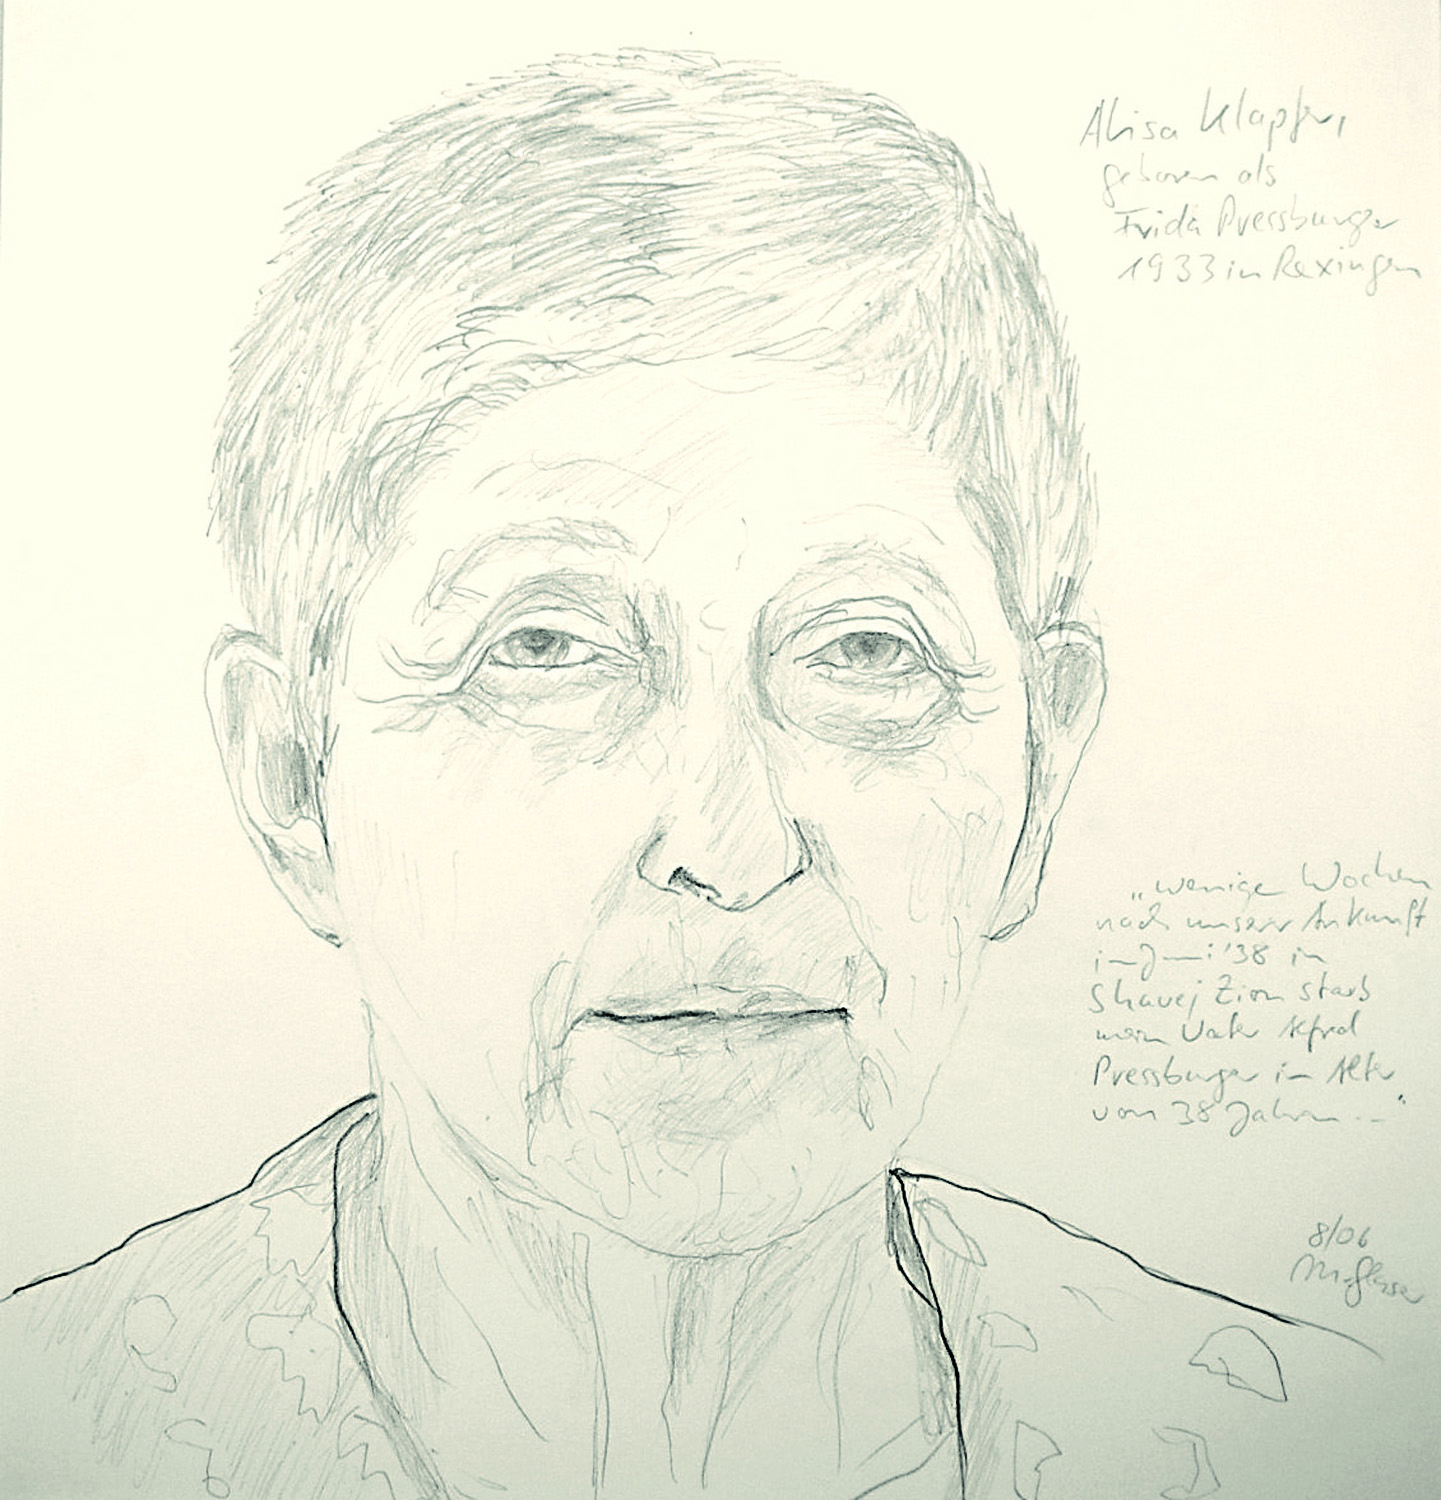 Alisa Klapfer,
geboren als
Frida Pressburger
1933 in Rexingen
„wenige Wochen
nach unserer Ankunft
im Juni '38 in
Shavej Zion starb
mein Vater Alfred
Pressburger im Alter
von 38 Jahren..."
8/06